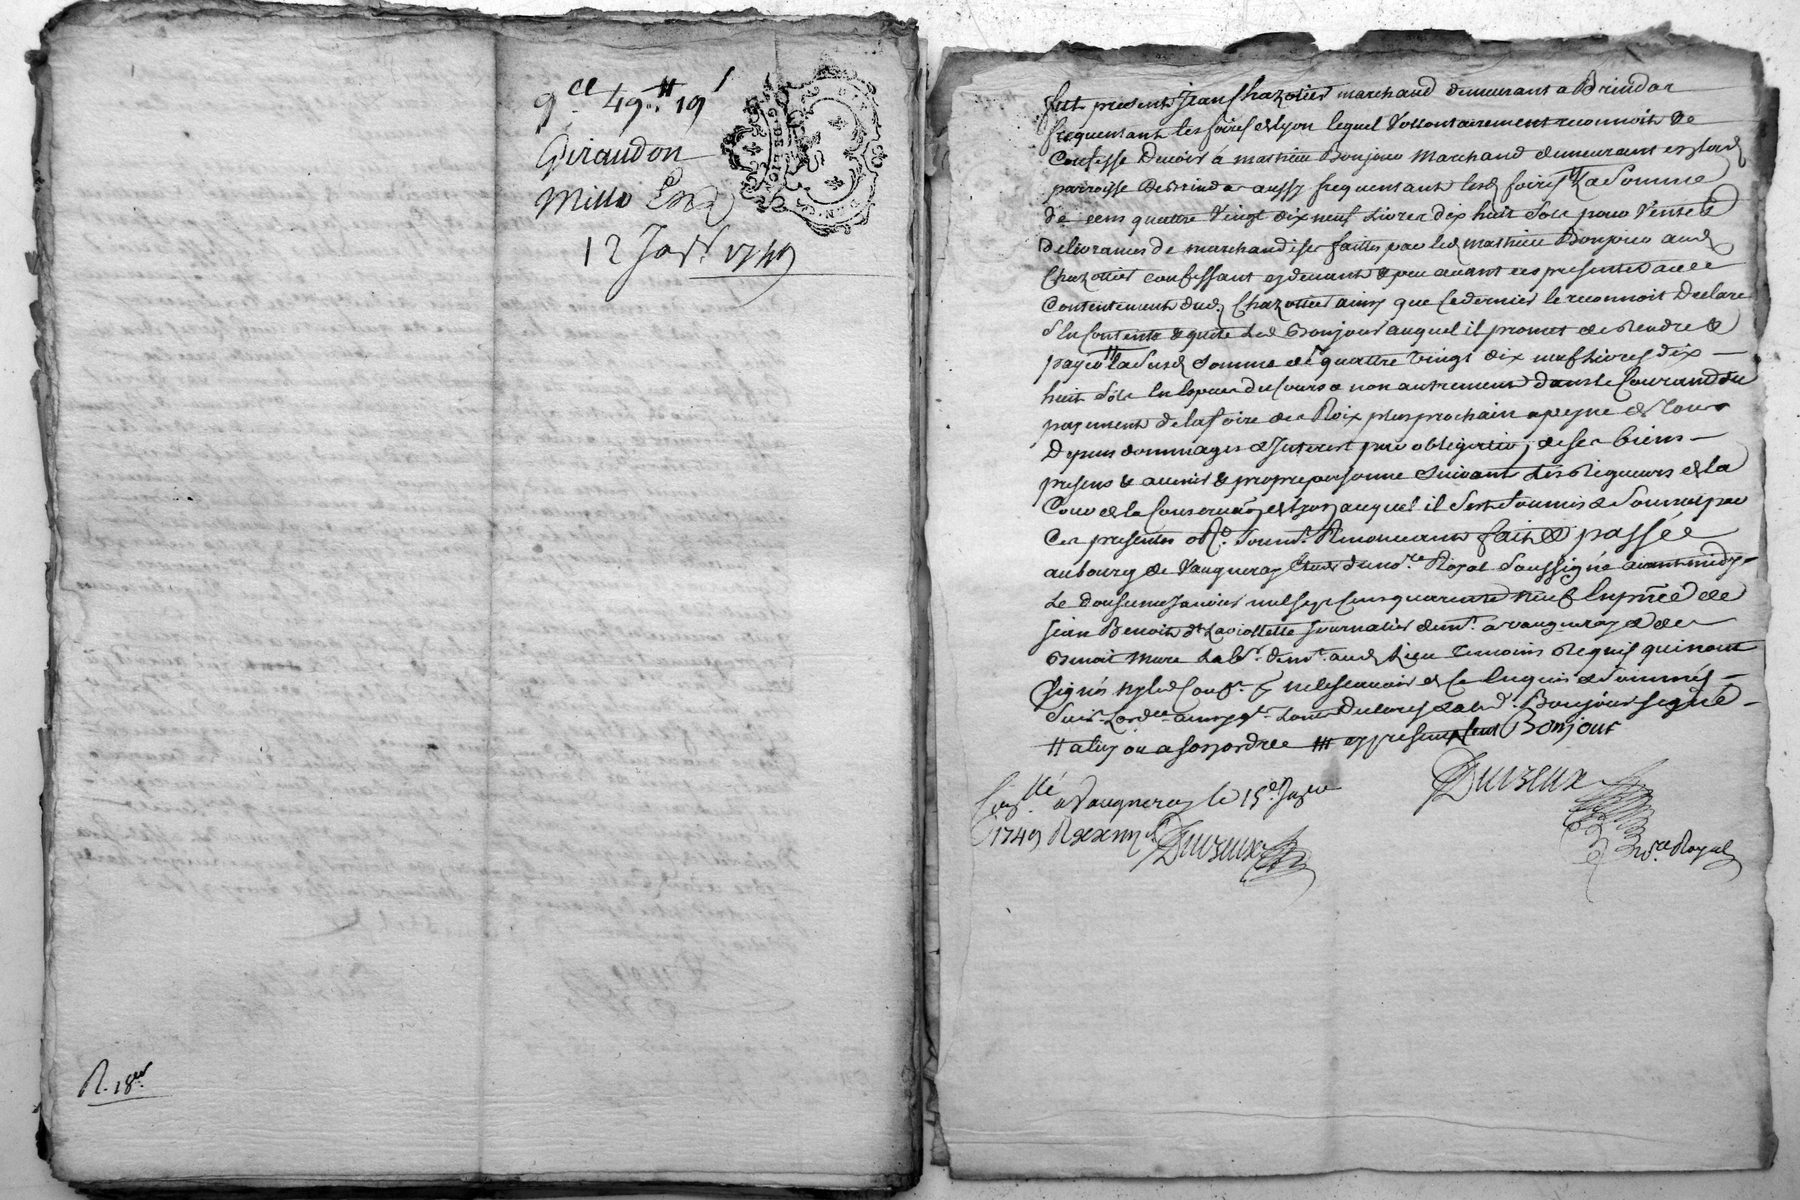 49 ₶ 19 s
Giraudon
Mille
12 Janr 1749
R. 18
fut present Jean Chazottier marchand demeurant a Brindas
frequentant les foires de Lyon lequel vollontairement reconnoit &
confesse devoir à mathieu Bonjour marchand demeurant en lad
parroisse de Brindas aussy frequentant lesd foires la somme
de cens quattre vingt dix neuf livres dix huit sols pour vente &
delivrances de marchandises faittes par led mathieu Bonjour aud
Chazottier confessant cydevant & peu avant ces presentes au
contentement dud Chazottier ainsy que ce dernier le reconnoit declare
s'en contente & quitte led Bonjour auquel il promet de rendre &
payer la susd somme de quattre vingt dix neuf livres dix
huit sols en espece du cours & non autrement dans le courand du
payement de la foire des Roix plus prochain a peyne de tous
depens dommages & Interest par obligation de ses biens
presens & avenir & propre personne suivant les Rigueurs de la
Cour de la Conservaon de Lyon auquel il s'est soumis & soumet par
ces presentes soum. Renonceant fait & passé
au bourg de Vaugneray Etude du no.re Royal soussigné avant midy
Le dousieme Janvier mil sept cens quarente neuf En pnce de
Jean Benoit dt Laviollette Journalier demt a vaugneray & de
Benoit mure Lab.r demt aud Lieu temoins Requis qui n'ont
signés ny led ne le scavoir de ce Enquis & sommés
led. Bonjour signé
a luy ou a son ordre Bonjour
Duvzeux
no.re Royal
Con.llé a Vaugneray le 15e Janvier
1749 R Duvzeux